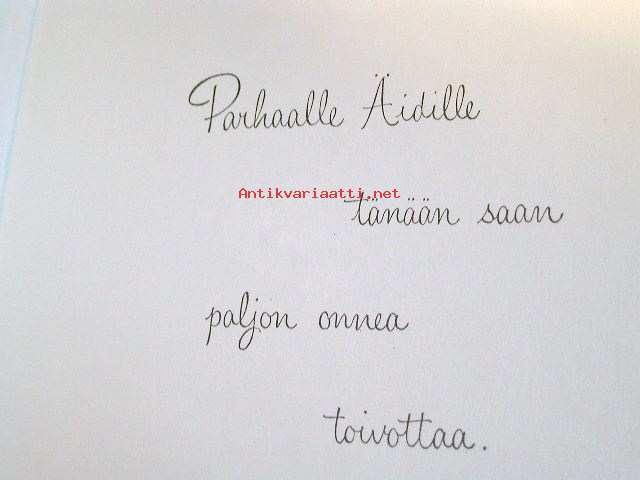 Parhaalle Äidille
Antikvariaatti.net
tänään saan
paljon onnea
toivottaa.